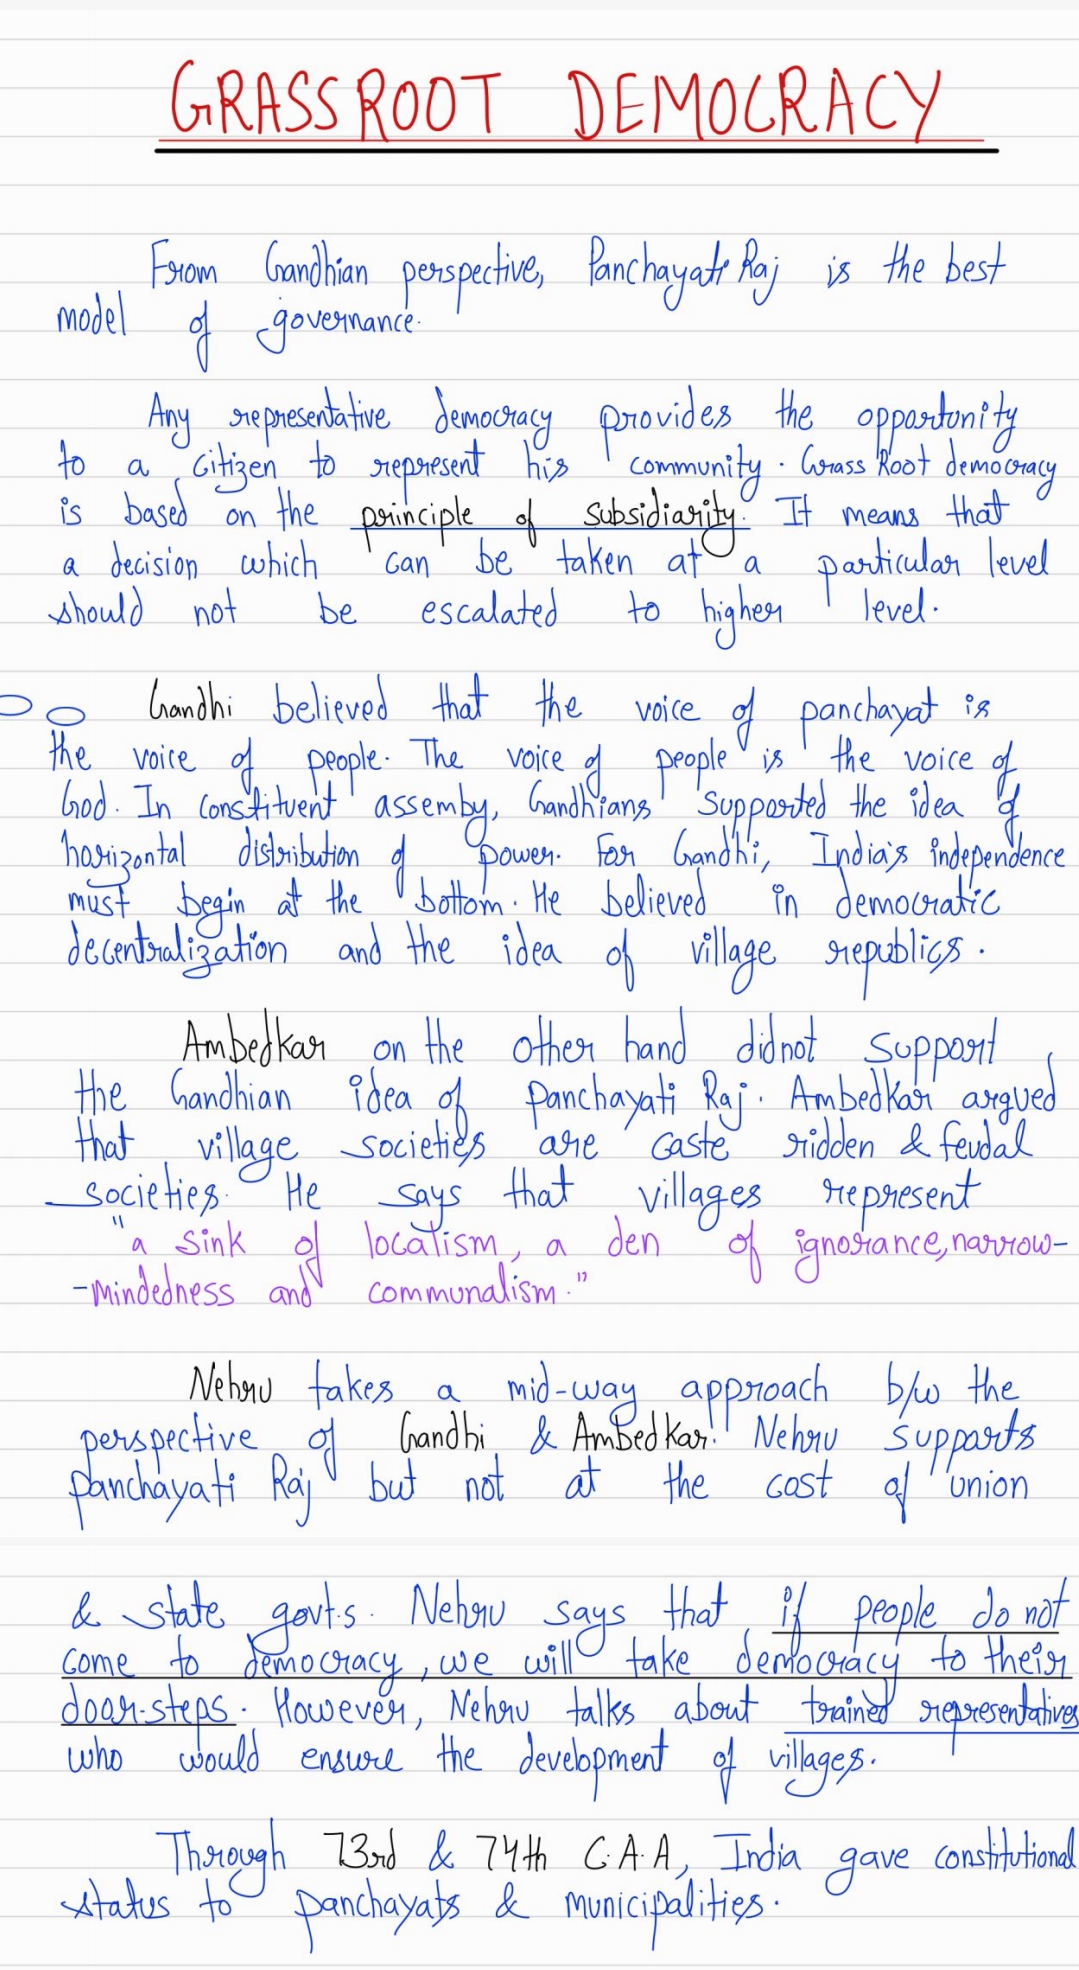 GRASSROOT DEMOCRACY
From Gandhian perspective, Panchayati Raj is the best
model of governance.
Any representative democracy provides the opportunity
to a citizen to represent his community. Grass Root democracy
is based on the principle of subsidiarity. It means that
a decision which can be taken at a particular level
should not be escalated to higher level.
Gandhi believed that the voice of panchayat is
the voice of people. The voice of people is the voice of
God. In Constituent assemby, Gandhians supported the idea of
horizontal distribution of power. For Gandhi, India's independence
must begin at the bottom. He believed in democratic
decentralization and the idea of village republics.
Ambedkar on the other hand didnot support
the Gandhian idea of Panchayati Raj. Ambedkar argued
that village societies are caste ridden & feudal
societies. He says that villages represent
"a sink of localism, a den of ignorance, narrow-
-mindedness and communalism."
Nehru takes a mid-way approach b/w the
perspective of Gandhi & Ambedkar. Nehru supports
panchayati Raj but not at the cost of union
& state govt.s. Nehru says that if people do not
come to democracy, we will take democracy to their
door-steps. However, Nehru talks about trained representatives
who would ensure the development of villages.
Through 73rd & 74th C.A.A, India gave constitutional
status to panchayats & municipalities.